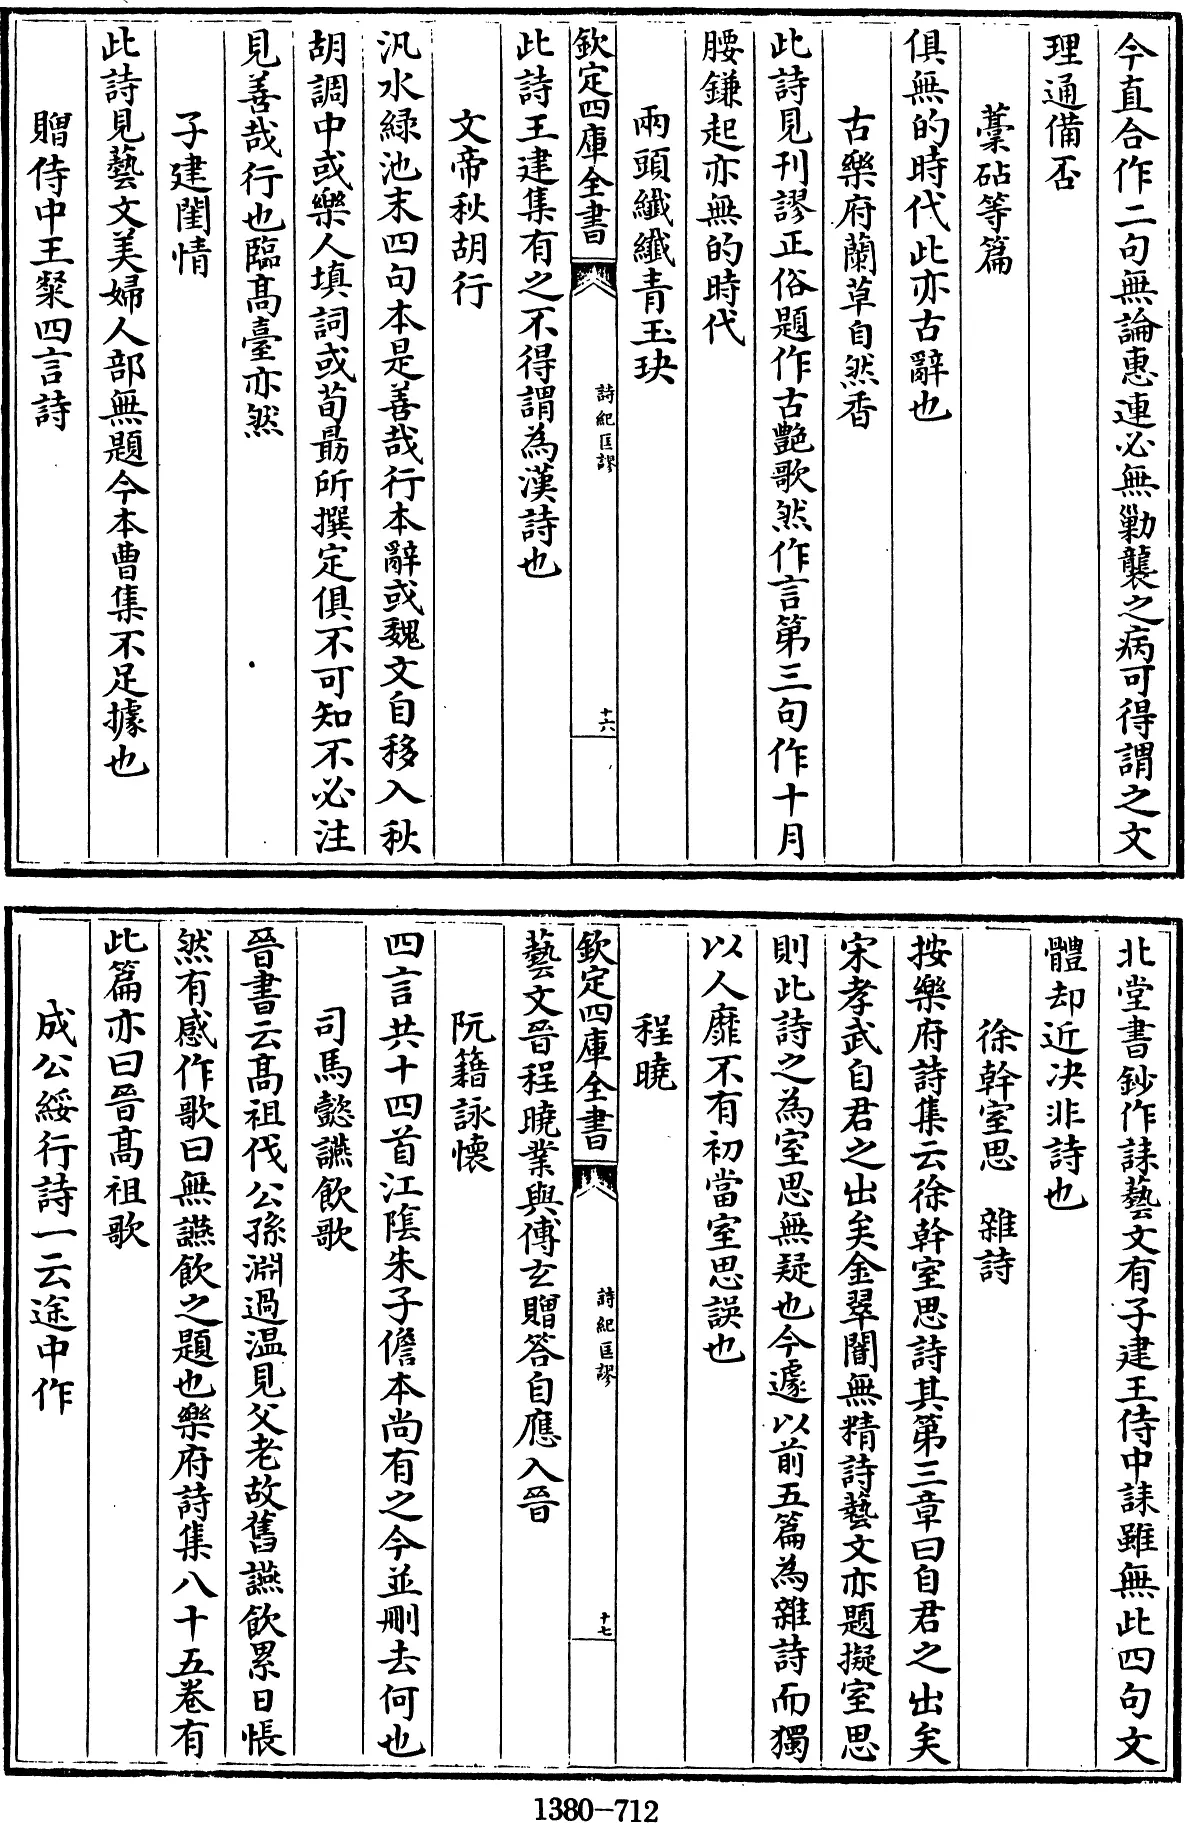 今直合作二句無論惠連必無勦襲之病可得謂之文
理通備否
藁砧等篇
俱無的時代此亦古辭也
古樂府蘭草自然香
此詩見刊謬正俗題作古艶歌然作言第三句作十月
腰鎌起亦無的時代
兩頭纖纖青玉玦
欽定四庫全書
詩紀匡謬
十六
此詩王建集有之不得謂為漢詩也
文帝秋胡行
汎水緑池末四句本是善哉行本辭或魏文自移入秋
胡調中或樂人填詞或荀勗所撰定俱不可知不必注
見善哉行也臨髙臺亦然
子建閨情
此詩見藝文美婦人部無題今本曹集不足據也
贈侍中王粲四言詩
北堂書鈔作誄藝文有子建王侍中誄雖無此四句文
體却近决非詩也
徐幹室思 雜詩
按樂府詩集云徐幹室思詩其第三章曰自君之出矣
宋孝武自君之出矣金翠闇無精詩藝文亦題擬室思
則此詩之為室思無疑也今遽以前五篇為雜詩而獨
以人靡不有初當室思誤也
程曉
欽定四庫全書
詩紀匡謬
十七
藝文晉程曉業與傅玄贈答自應入晉
阮籍詠懷
四言共十四首江隂朱子儋本尚有之今並刪去何也
司馬懿讌飲歌
晉書云髙祖伐公孫淵過温見父老故舊讌飲累日悵
然有感作歌曰無讌飲之題也樂府詩集八十五卷有
此篇亦曰晉髙祖歌
成公綏行詩一云途中作
1380-712